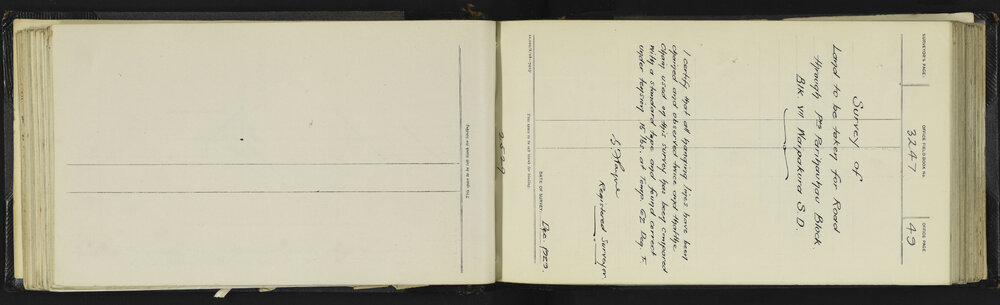 SURVEYOR'S PAGE.
OFFICE FIELD-BOOK No.
3247
OFFICE PAGE.
49
Survey of
Land to be taken for Road
through Pts Parihauhau Block.
Blk VII Waipakura S.D.
I certify that all hanging lines have been
chained and observed twice and that the
Chain used on this survey has been compared
with a standard tape and found correct
under tension 15 lbs. at Temp. 62 Deg. F.
Registered Surveyor
DATE OF SURVEY
Dec. 1923.
2529